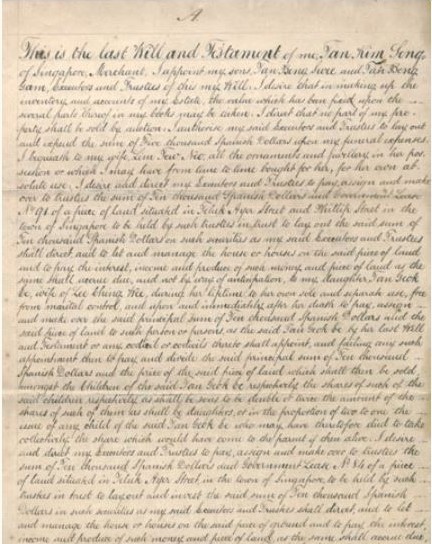 A
This is the last Will and Testament of me Tan Kim Seng
of Singapore, Merchant. I appoint my sons Tan Beng Swee and Tan Beng
Gam, Executors and Trustees of this my Will. I desire that in making up the
inventory and accounts of my Estate, the value which has been fixed upon the
several parts thereof in my books may be taken. I direct that no part of my pro-
perty shall be sold by auction. I authorise my said Executors and Trustees to lay out
and expend the sum of Five thousand Spanish Dollars upon my funeral expenses.
I bequeath to my wife, Lim Neo, all the ornaments and jewellery in her pos-
session or which I may have from time to time bought for her, for her own ab-
solute use. I desire and direct my Executors and Trustees to pay, assign and make
over to trustees the sum of Ten thousand Spanish Dollars and Government Lease
No 91 of a piece of land situated in Teluk Ayer Street and Phillip Street in the
town of Singapore to be held by such trustees in trust to lay out the said sum of
Ten thousand Spanish Dollars on such securities as my said Executors and Trustees
shall direct and to let and manage the house or houses on the said piece of land
and to pay the interest, income and produce of such money and piece of land as the
same shall accrue due, and not by way of anticipation, to my daughter Tan Geok
be, wife of Lee Cheng Wee, during her lifetime to her own sole and separate use, free
from marital control, and upon and immediately after her death to pay, assign
and make over the said principal sum of Ten thousand Spanish Dollars and the
said piece of land to such person or persons, as the said Tan Geok be by her last Will
and Testament or any codicil or codicils thereto shall appoint, and failing any such
appointment then to pay and divide the said principal sum of Ten thousand
Spanish Dollars and the price of the said piece of land which shall then be sold,
amongst the Children of the said Tan Geok be respectively the shares of such of the
said children respectively as shall be sons to be double or twice the amount of the
shares of such of them as shall be daughters, or in the proportion of two to one the
issue of any child of the said Tan Geok be who may have theretofore died to take
collectively the share which would have come to the parent if then alive. I desire
and direct my Executors and Trustees to pay, assign and make over to trustees the
sum of Ten thousand Spanish Dollars and Government Lease No 84 of a piece
of land situated in Teluk Ayer Street in the town of Singapore, to be held by such
trustees in trust to lay out and invest the said sum of Ten thousand Spanish
Dollars in such securities as my said Executors and Trustees shall direct, and to let
and manage the house or houses on the said piece of ground and to pay the interest,
income and produce of such money and piece of land, as the same shall accrue due,